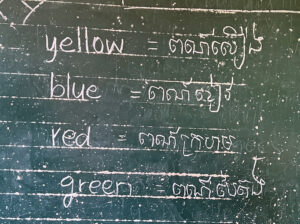 yellow = ពណ៌លឿង
blue = ពណ៌ខៀវ
red = ពណ៌ក្រហម
green = ពណ៌បៃតង